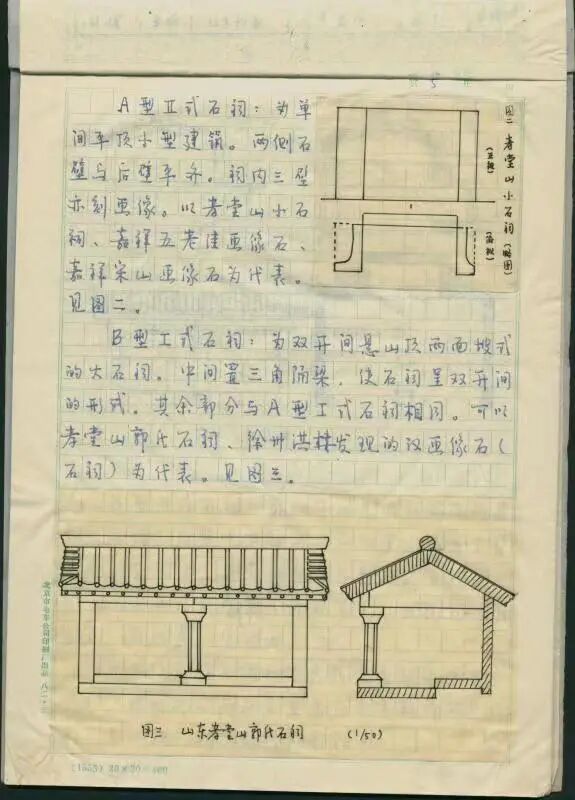 A型Ⅱ式石祠：为单
间平顶小型建筑。两侧石
壁与后壁平齐。祠内三壁
亦刻画像。以孝堂山小石
祠、嘉祥五老洼画像石、
嘉祥宋山画像石为代表。
见图二。
图二 孝堂山小石祠（略图）
（正视）
（俯视）
B型Ⅰ式石祠：为双开间悬山顶两面坡式
的大石祠。中间置三角隔梁，使石祠呈双开间
的形式。其余部分与A型Ⅰ式石祠相同。可以
孝堂山郭氏石祠、徐州洪楼发现的汉画像石（
石祠）为代表。见图三。
图三 山东孝堂山郭氏石祠 （1/50）
（1553）20×20=400